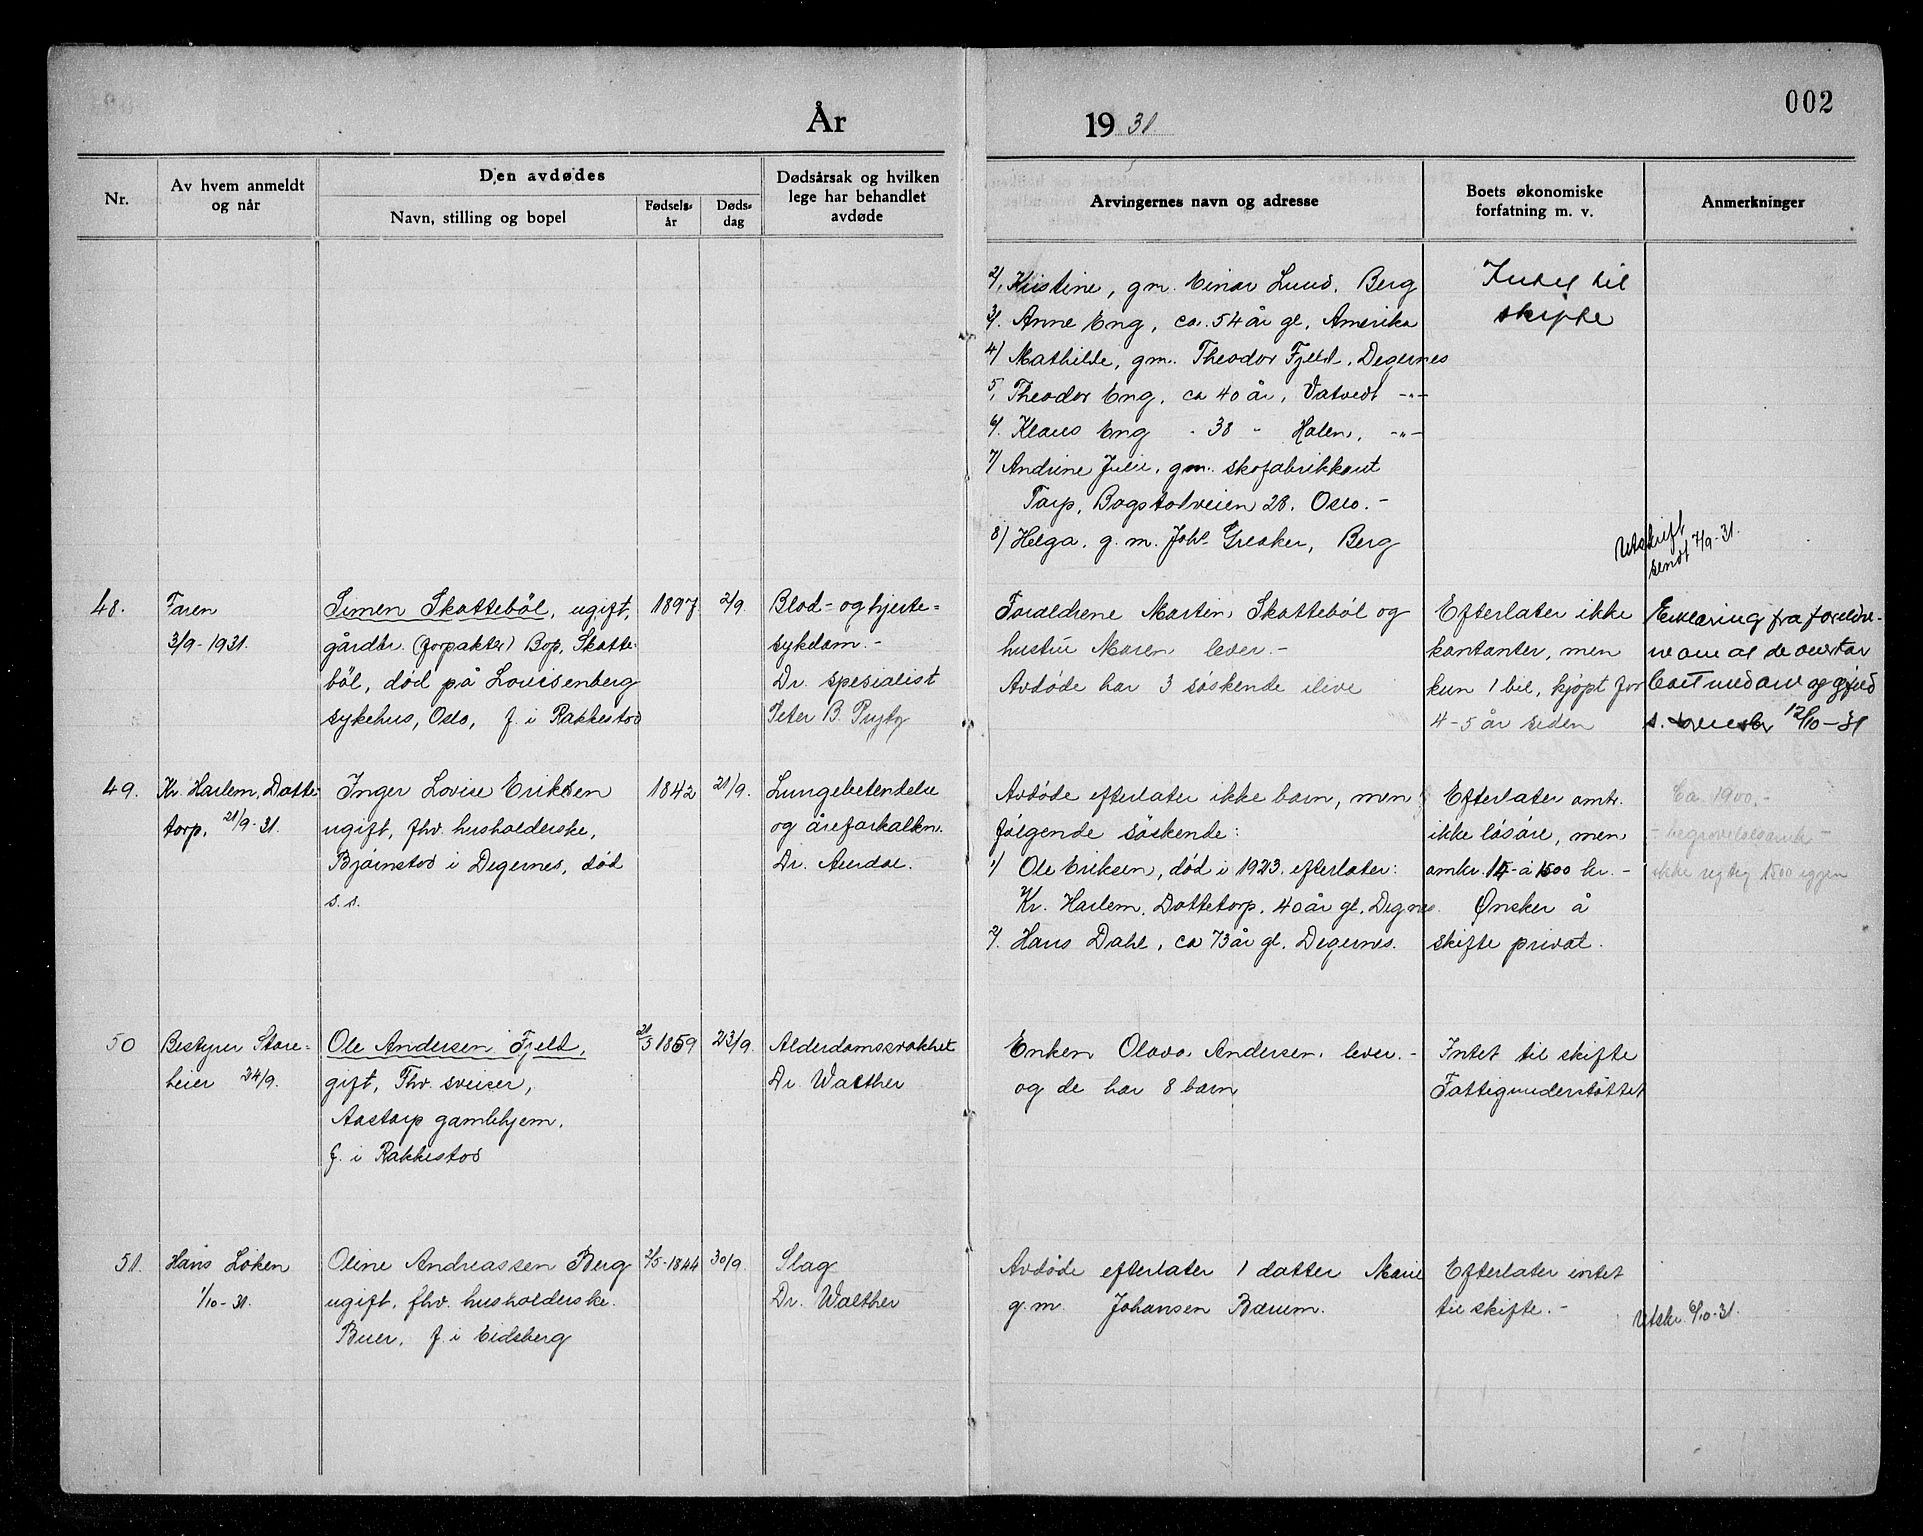 002
År
1931
Nr.
Av hvem anmeldt
og når
Den avdødes
Navn, stilling og bopel
Fødsels-
år
Døds-
dag
Dødsårsak og hvilken
lege har behandlet
avdøde
Arvingernes navn og adresse
Boets økonomiske
forfatning m. v.
Anmerkninger
2/. Kristine, gm. Einar Lund, Berg
3/. Anne Eng, ca. 54 år gl, Amerika
4/ Mathilde, gm. Theodor Fjeld, Degernes
5, Theodor Eng, ca 40 år, Vatvedt -"-
6/. Klaus Eng - 38 - Holen, -"-
7/ Andrine Julie, gm. skofabrikkant
Torp, Bogstadveien 28, Oslo.-
8/ Helga, g.m. Johs Greaker, Berg
Intet til
skifte
Utskrift
sendt 7/9-31.
48.
Faren
3/9-1931.
Simen Skattebøl, ugift,
gårdbr. (forpakter) Bop, Skatte-
bøl, død på Lovisenberg
sykehus, Oslo, f. i Rakkestad
1897
2/9.
Blod- og hjerte-
sykdom.-
Dr. spesialist
Peter B.
Foreldrene Martin Skattebøl og
hustru Maren lever.-
Avdøde har 3 søskende ilive
Efterlater ikke
kontanter, men
kun 1 bil, kjøpt for
4-5 år siden
Erklæring fra foreldre-
ne om at de overtar
boet med arv og gjeld
s. 12/10-31
49.
Kr. Harlem, Dotte-
torp, 21/9-31.
Inger Lovise Eriksen
ugift, fhv. husholderske,
Bjørnstad i Degernes, død
s.s.
1842
21/9.
Lungebetendelse
og åreforkalkn.
Dr. Aurdal.
Avdøde efterlater ikke barn, men
følgende søskende:
1/ Ole Eriksen, død i 1923, efterlater:
Kr. Harlem, Dottetorp, 40 år gl, Degnes.
2/. Hans Dahl, ca 73 år gl, Degernes.
Efterlater omtr.
ikke løsøre, men
omkr. 14- à 1500 kr.-
Ønsker å
skifte privat.
Ca. 1900,-
- begravelsesomk -
ikke 1500 igjen
50
Bestyrer Store-
heier 24/9.
Ole Andersen Fjeld,
gift, Fhv. sveiser,
Aastorp gamlehjem,
f. i Rakkestad
21/3 1859
23/9.
Alderdomssvakhet
Dr. Walther
Enken Olava Andersen lever.-
og de har 8 barn
Intet til skifte
Fattigunderstøttet
51.
Hans Løken
1/10-31.
Oline Andreassen Berg
ugift, fhv. husholderske.
Buer, f. i Eidsberg
2/5-1844
30/9.
Slag
Dr. Walther
Avdøde efterlater 1 datter Marie
g.m. Johansen Bærum.
Efterlater intet
til skifte.-
Utskr. 6/10-31.